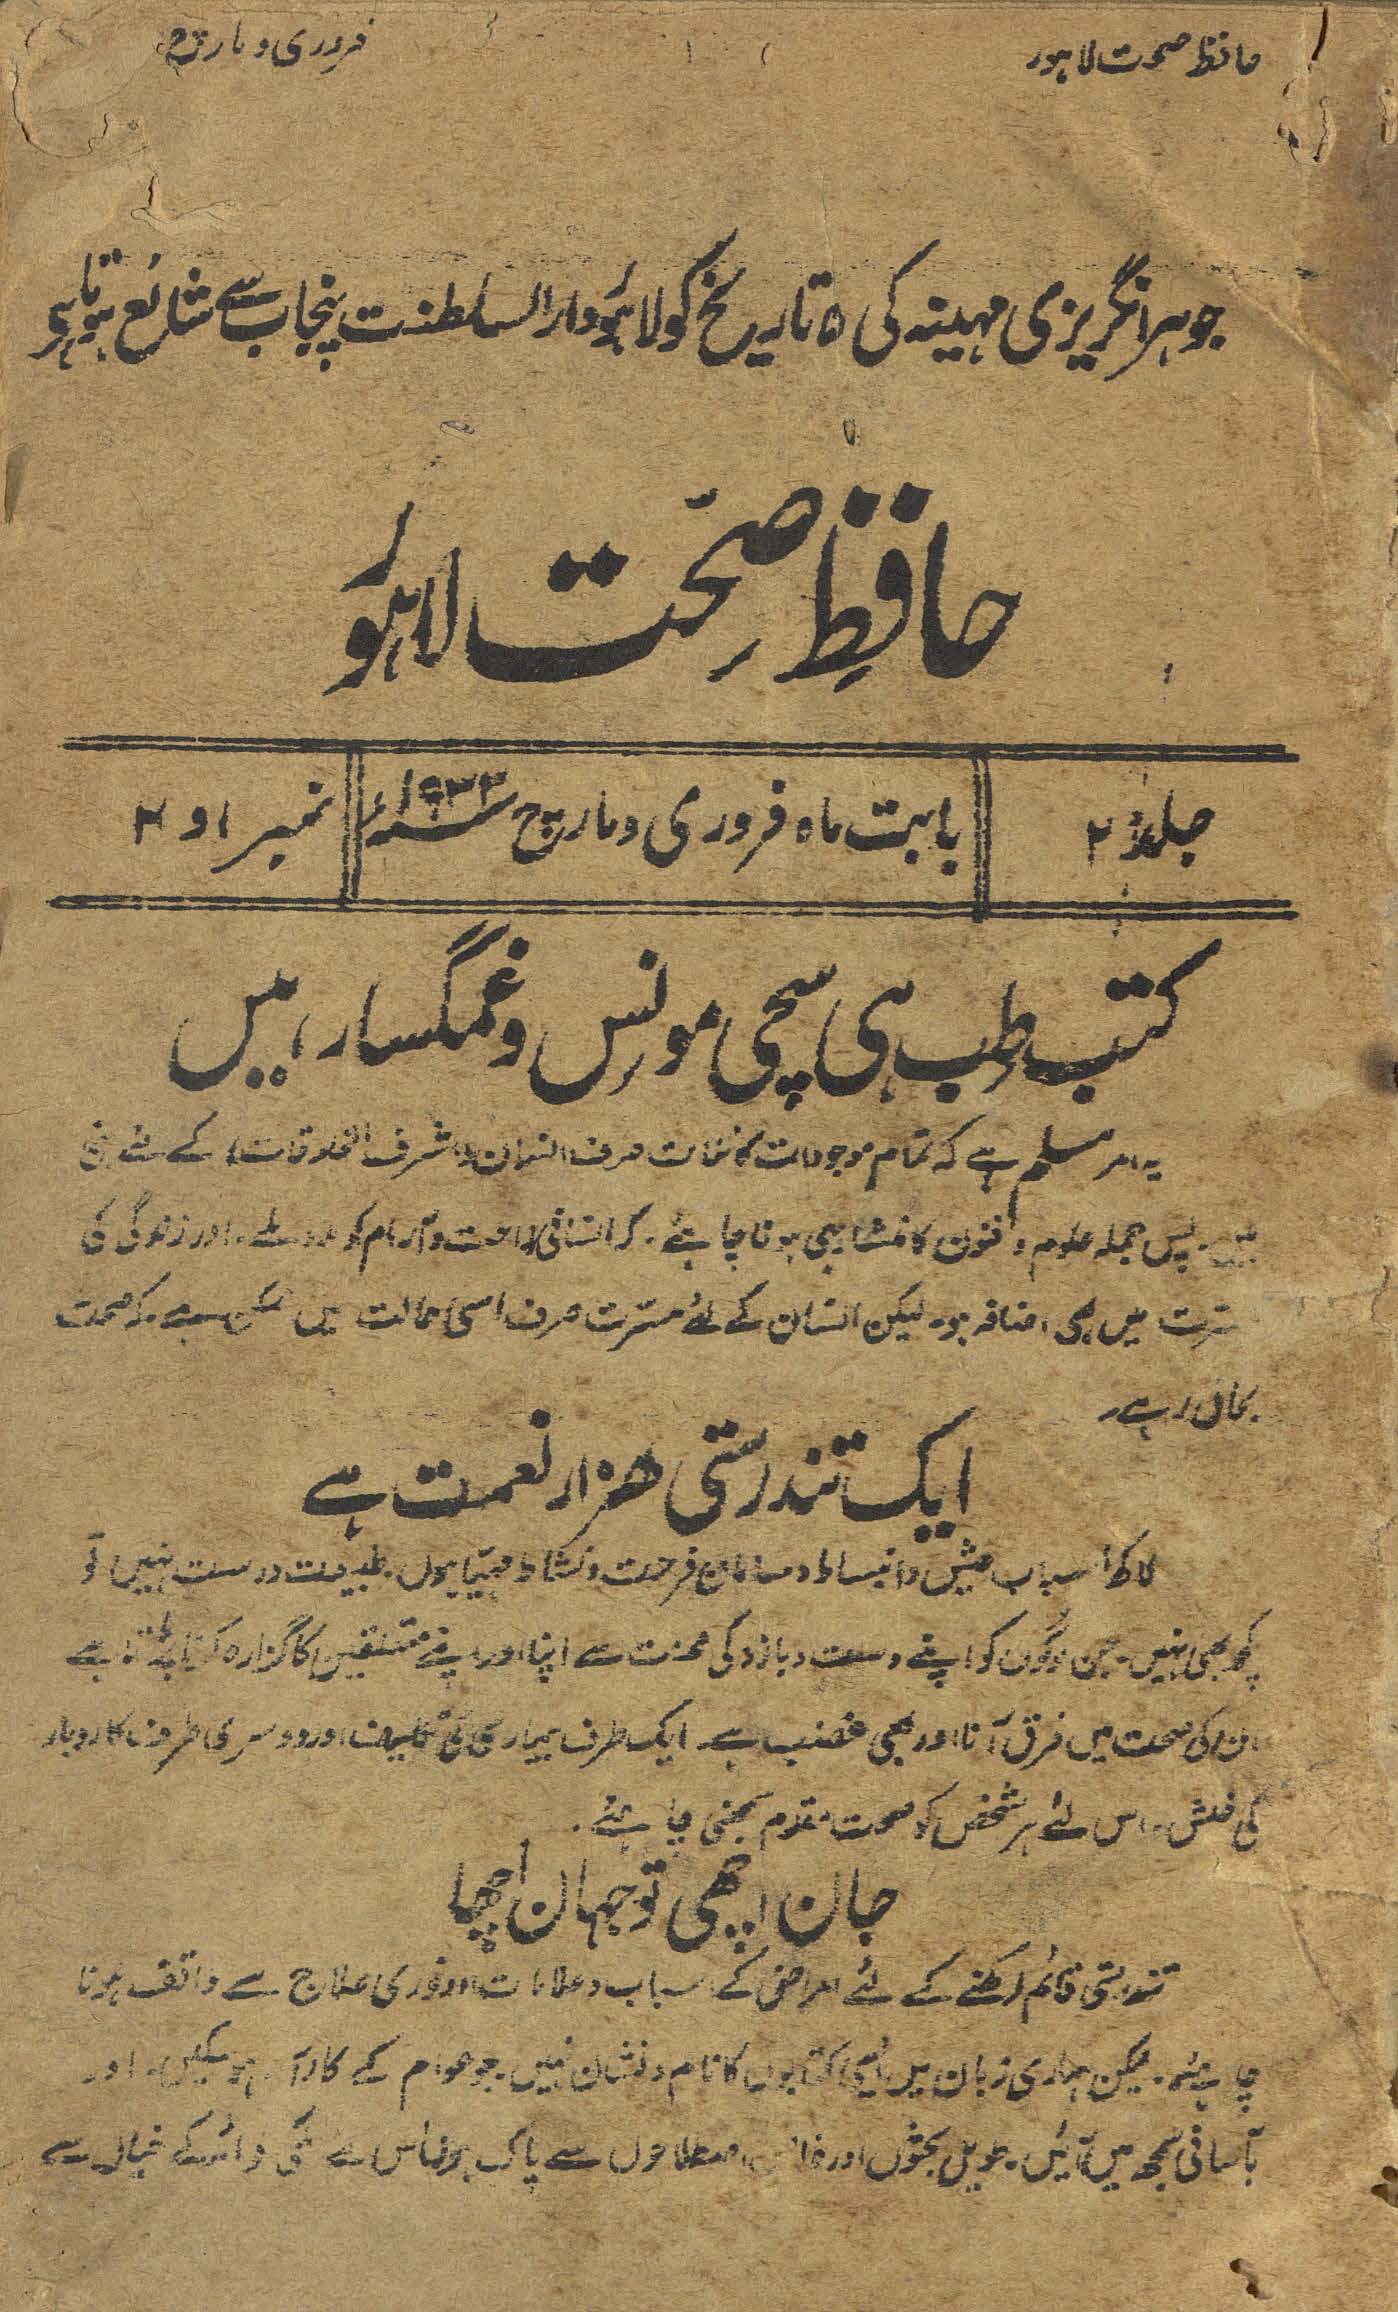 حافظ صحت لاہور
فروری و مارچ
جو ہر انگریزی مہینہ کی ۵ تاریخ کو لاہور دارالسلطنت پنجاب سے شائع ہوتا ہے
حافظِ صِحّت لاہور
جلد ۲
بابت ماہ فروری و مارچ ۱۹۳۳ء
نمبر ۱ و ۲
کتب طِب ہی سچی مونِس و غمگسار ہیں
یہ امر مسلم ہے کہ تمام موجودات کائنات صرف انسان (اشرف المخلوقات) کے لئے
پس جملہ علوم و فنون کا منشا یہی ہونا چاہئے۔ کہ انسانی راحت و آرام کو مدد ملے۔ اور زندگی کی
مسرت میں بھی اضافہ ہو۔ لیکن انسان کے لئے مسرت صرف اسی حالت میں ممکن ہے۔ کہ صحت
بحال رہے۔
ایک تندرستی ھزار نعمت ہے
لاکھ اسباب عیش و انبساط و سامان فرحت و نشاط مہیّا ہوں۔ طبیعت درست نہیں تو
کچھ بھی نہیں۔ جن لوگوں کو اپنے دست و بازو کی محنت سے اپنا اور اپنے متعلقین کا گزارہ کرنا پڑتا ہے
ان کی صحت میں فرق آنا اور بھی غضب ہے۔ ایک طرف بیماری کی تکلیف اور دوسری طرف کاروبار
کی خلش۔ اس لئے ہر شخص کو صحت مقدم سمجھنی چاہئے۔
جان اچھی تو جہان اچھا
تندرستی قائم رکھنے کے لئے امراض کے اسباب و علامات اور فوری علاج سے واقف ہونا
چاہئے۔ لیکن ہماری زبان میں ایسی کتابوں کا نام و نشان نہیں۔ جو عوام کے کارآمد ہو سکیں۔ اور
بآسانی سمجھ میں آئیں۔ طویل بحثوں اور اصطلاحوں سے پاک ہوں اس لئے کے خیال سے